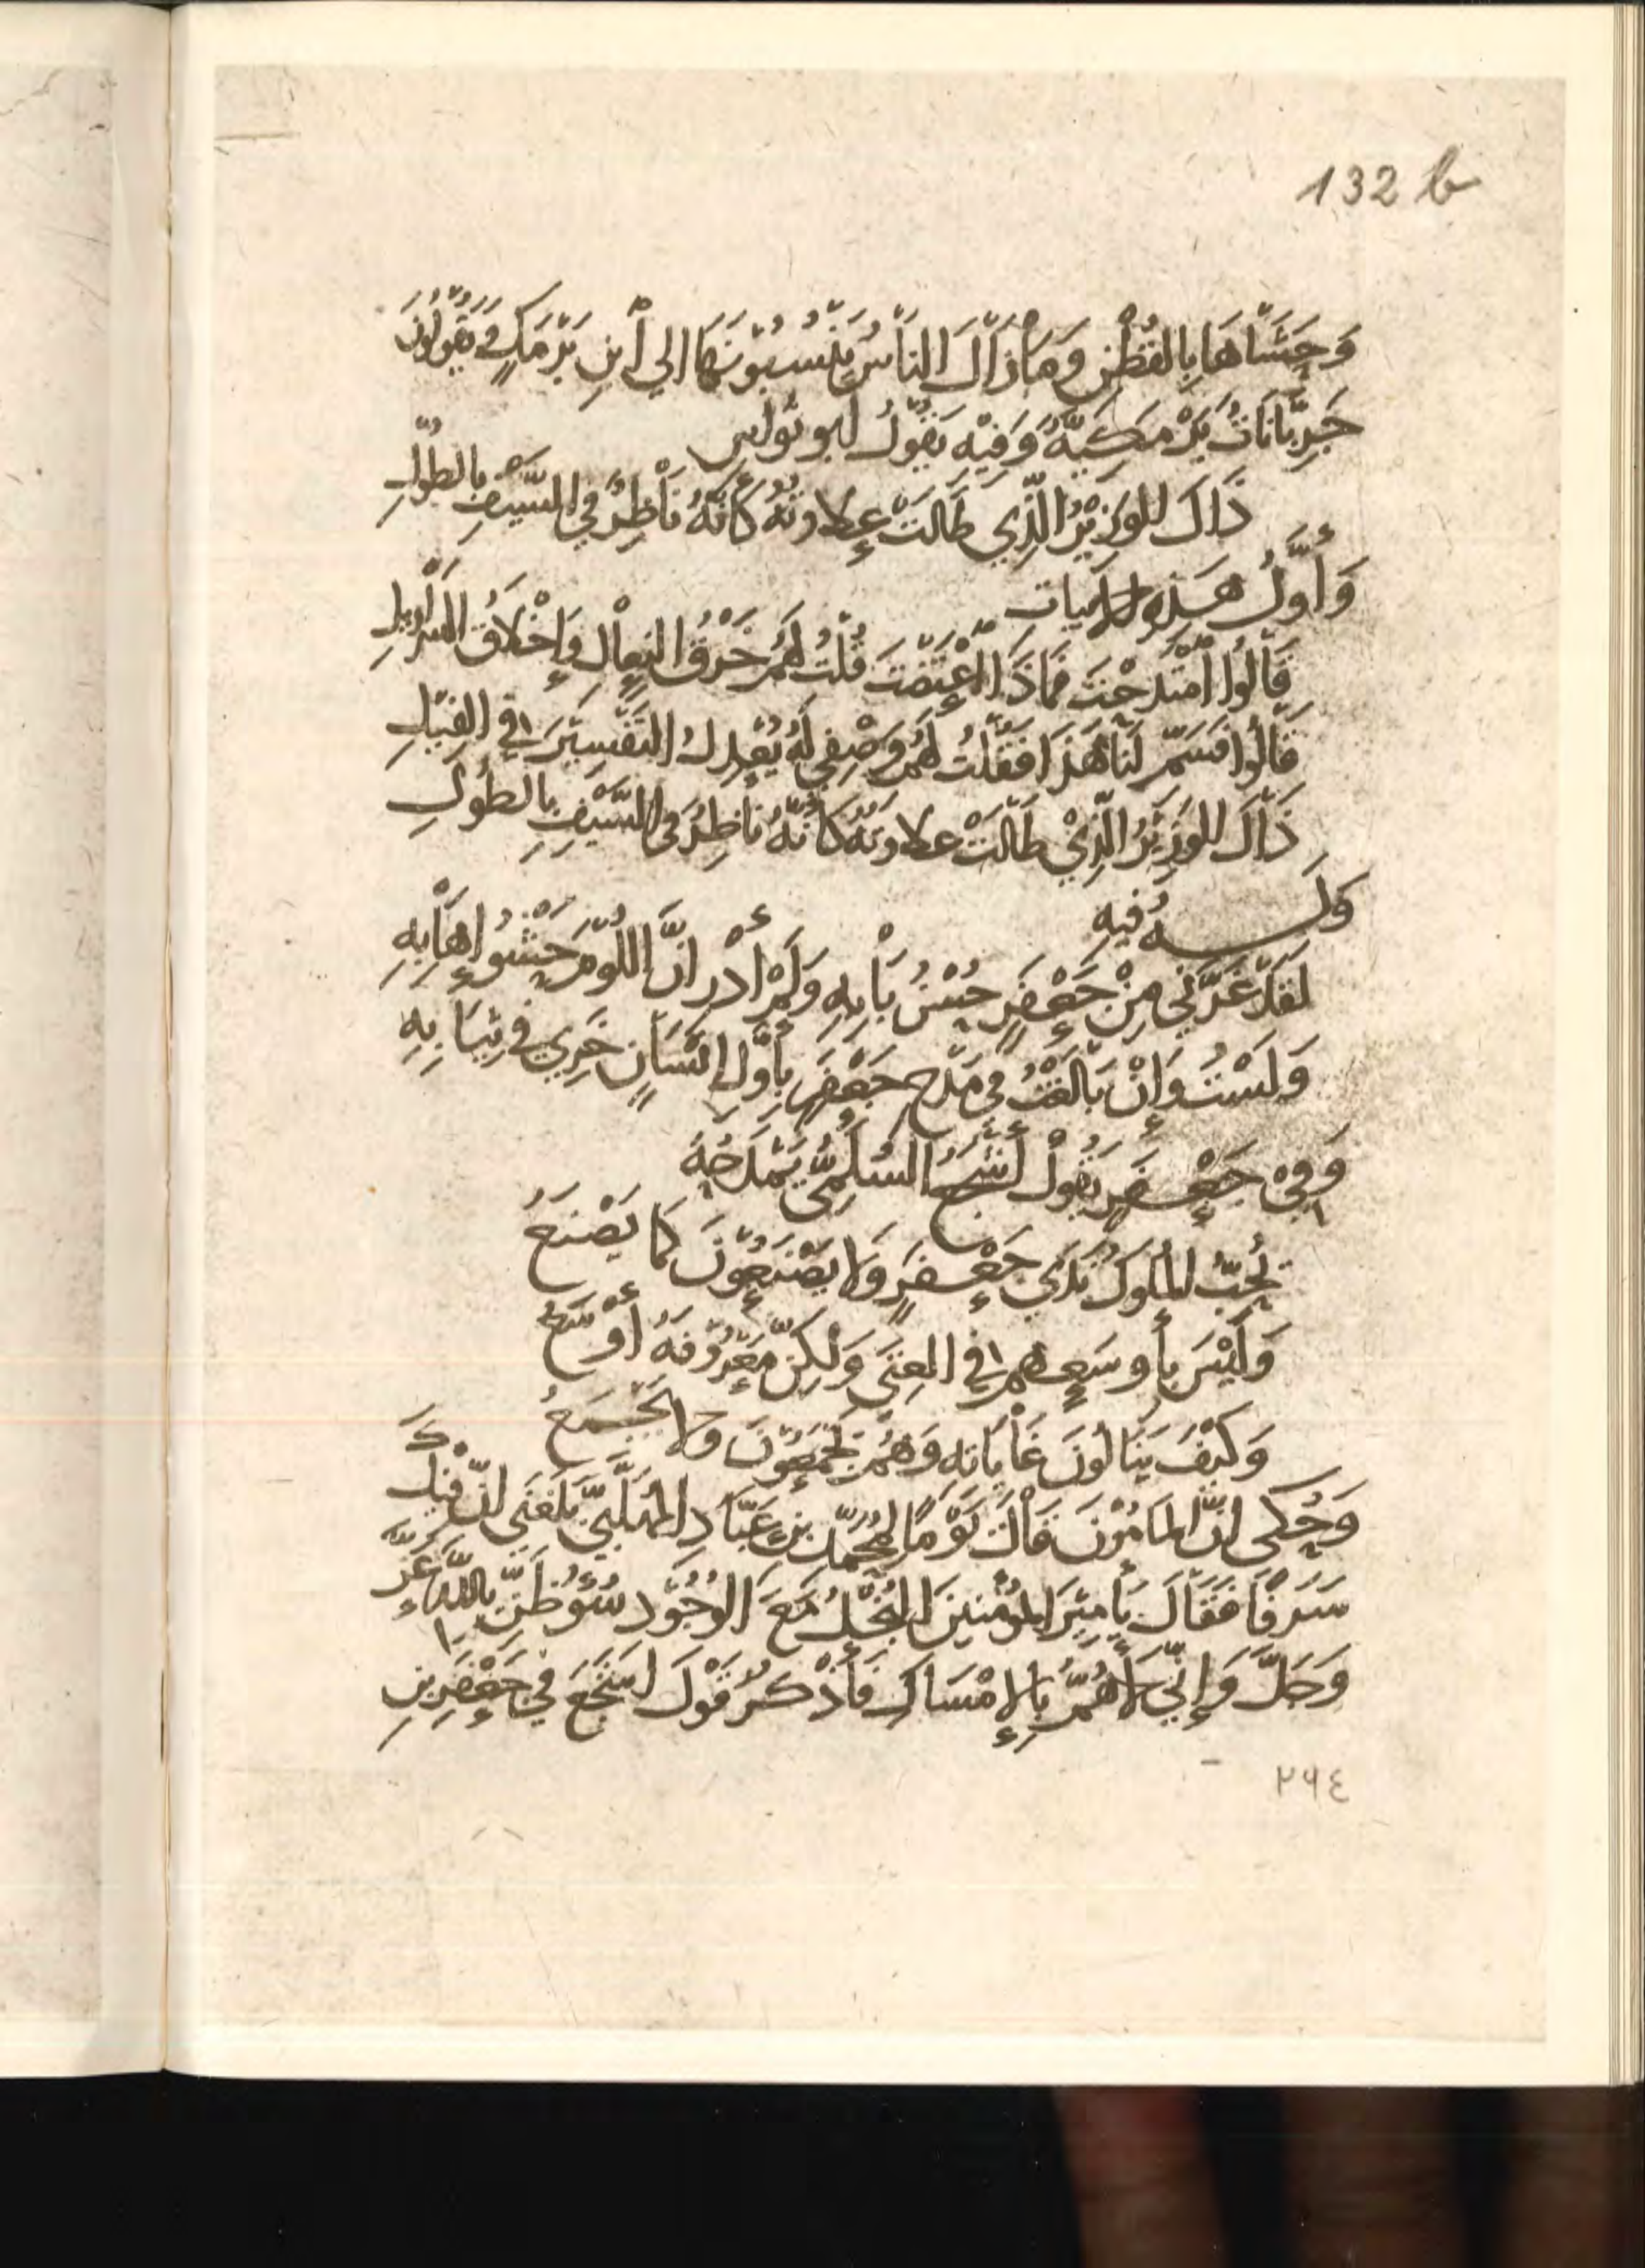 132 b
وَحَشَّاهَا بِالقُطْنِ وَمَا زَالَ النَّاسُ يَنْسُبُوْنَهَا الي أبنِ بَرْمَكٍ فَيَقُوْلُونَ
جَرِبَّانَاتُ بَرْمَكِيَّةٌ وَفِيْهِ يَقُوْلُ ابو نواس
ذَاكَ الوَزِيْرُ الَّذِي طَالَتْ عِلاوتُهُ كَأنَّهُ نَاظِرٌ في السَّيْفِ بالطُّولِ
وَأوَّلُ هَذِهِ الابيات
قَالُوا أمْتَدَحْتَ فَمَاذَا اعْتَضْتَ قُلْتُ لَهُمْ خَرْقُ النِعَالِ وَإخْلاقُ السَّرَاوِيلِ
قَالُوا فَسَمِّ لَنَا هَذَا فَقُلْتُ لَهُمْ وَصْفِي لَهُ يُعْدِلُ التَفْسِيْرَ في القِيْلِ
ذَاكَ الوَزِيْرُ الَّذِيْ طَالَتْ علاوتُهُ كَأنَّهُ نَاظِرٌ في السَّيْفِ بالطُوْلِ
وَلَــهُ فيهِ
لَقَدْ غَرَّنِي مِنْ جَعْفَرٍ حُسْنُ بَابِهِ وَلَمْ أدْرِ انَّ اللُّوْمَ حَشْوُ إهَابِهِ
وَلَسْتُ وَإنْ بَالَغْتُ في مَدْحِ جَعْفَرٍ بِأوَّلِ إنْسَانٍ خَرِي في ثِيَابِهِ
وَفِيْ جَعْفَرٍ يَقُولُ أشْجَعُ السُلَمِيُّ يَمْدَحُهُ
يُحِبُّ المُلُوكُ نَدَي جَعْفَرٍ وَلا يَصْنَعُوْنَ كَمَا يَصْنَعُ
وَلَيْسَ بِأَوسَعِهِم في الغِنَى وَلَكِنَّ مَعْرُوْفَهُ أوْسَعُ
وَكَيْفَ يَنَالُونَ غَايَاتِهِ وَهُمْ يَجْمَعُوْنَ وَلا يَجْمَعُ
وَحُكى انَّ المَامُوْنَ قَالَ يَوْمًا لِمُحَمَّدِ بنِ عَبَّادِ المُهَلَّبِيِّ بَلَغَنِي انَّ فِيْكَ
سَرَفًا فَقَالَ يَا مِيْرَ المُؤْمِنينَ البُخْلُ مَعَ الوُجُوْدِ سُوْءُ ظَنٍّ بِاللهِ عَزَّ
وَجَلَّ وَإنِّي لأهُمُّ بِالإمْسَاكِ فَأذْكُرُ قَوْلَ اشجَعَ في جَعْفَرِ بنِ
٢٦٤